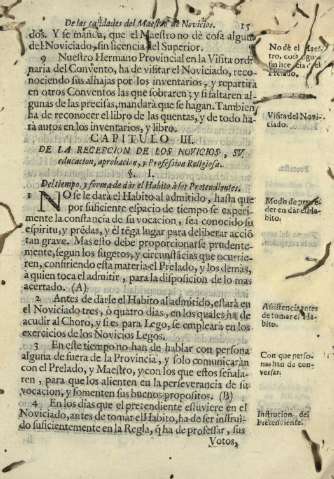 De las calidades del Maestro de Novicios. 15
dos. Y se manda, que el Maestro no dè cosa alguna
del Noviciado, sin licencia del Superior.
No dè el Maestro,
sin licencia del
Prelado.
9 Nuestro Hermano Provincial en la Visita ordi-
naria del Convento, ha de visitar el Noviciado, reco-
nociendo sus alhajas por los inventarios, y repartirà
en otros Conventos las que sobraren; y si faltaren al-
gunas de las precisas, mandarà que se hagan. Tambien
ha de reconocer el libro de las quentas, y de todo ha-
rà autos en los inventarios, y libro.
Visita del Novi-
ciado.
CAPITULO III.
DE LA RECEPCION DE LOS NOVICIOS, SU
educacion, aprobacion, y Profession Religiosa.
§. I.
Del tiempo, y forma de dàr el Habito à los Pretendientes.
NO se le darà el Habito al admitido, hasta que
por suficiente espacio de tiempo se experi-
mente la constancia de su vocacion, sea conocido su
espiritu, y prẽdas, y èl tẽga lugar para deliberar acciõ
tan grave. Mas esto debe proporcionarse prudente-
mente, segun los sugetos, y circunstãcias que ocurrie-
ren, confiriendo esta materia el Prelado, y los demàs,
à quien toca el admitir, para la disposicion de lo mas
acertado. (A)
Modo de proce-
der en dàr el Ha-
bito.
2 Antes de darle el Habito al admitido, estarà en
el Noviciado tres, ò quatro dias, en los quales ha de
acudir al Choro, y si es para Lego, se emplearà en los
exercicios de los Novicios Legos.
Assistencia antes
de tomar el Ha-
bito.
3 En este tiempo no han de hablar con persona
alguna de fuera de la Provincia, y solo comunicaràn
con el Prelado, y Maestro, y con los que estos señala-
ren, para que los alienten en la perseverancia de su
vocacion, y fomenten sus buenos propositos. (B)
Con que perso-
nas han de con-
versar.
4 En los dias que el pretendiente estuviere en el
Noviciado, antes de tomar el Habito, ha de ser instrui-
do suficientemente en la Regla, q̃ ha de professar, sus
Votos,
Instruccion del
Pretendiente.